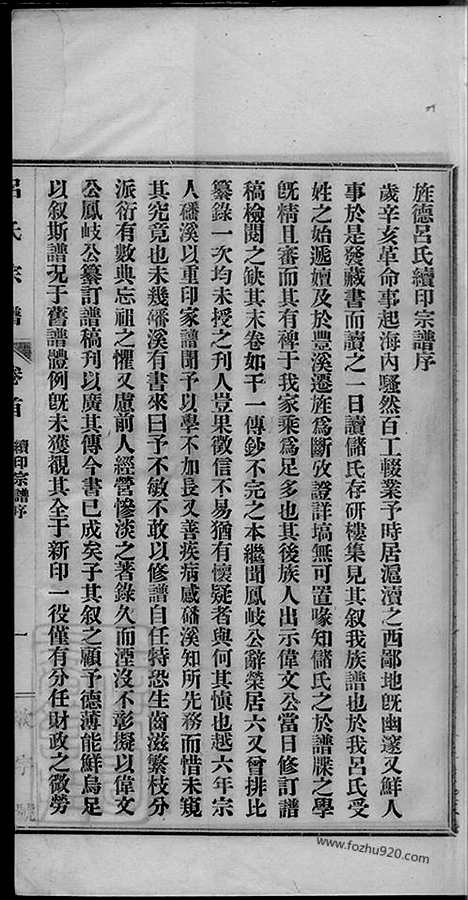 旌德呂氏續印宗譜序
歲辛亥革命事起海內騷然百工輟業予時居滬瀆之西鄙地旣幽邃又鮮人
事於是發藏書而讀之一日讀儲氏存硏樓集見其叙我族譜也於我呂氏受
姓之始遞嬗及於豐溪遷旌爲斷攷證詳塙無可置喙知儲氏之於譜牒之學
旣精且審而其有裨于我家乘爲足多也其後族人出示偉文公當日修訂譜
稿檢閱之缺其末卷如干一傳鈔不完之本繼聞鳳岐公辭榮居六又曾排比
纂錄一次均未授之刊人豈果徵信不易猶有懷疑者與何其愼也越六年宗
人磻溪以重印家譜聞予以學不加長又善疾病感磻溪知所先務而惜未窺
其究竟也未幾磻溪有書來曰予不敏不敢以修譜自任特恐生齒滋繁枝分
派衍有數典忘祖之懼又慮前人經營慘淡之著錄久而湮沒不彰擬以偉文
公鳳岐公纂訂譜稿刊以廣其傳今書已成矣子其叙之顧予德薄能鮮烏足
以叙斯譜况于舊譜體例旣未獲觀其全于新印一役僅有分任財政之微勞
呂氏宗譜 卷首 續印宗譜序 一
www.fozhu920.com